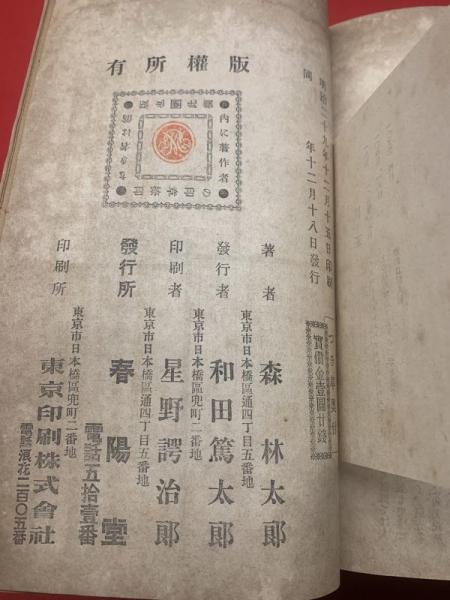 明治二十九年十二月十五日印刷
同 年十二月十八日發行
實價金壹圓廿錢
版權所有
内に著作者
著者 森 林太郎
東京市日本橋區通四丁目五番地
發行者 和田篤太郎
東京市日本橋區兜町二番地
印刷者 星野諤治郎
東京市日本橋區通四丁目五番地
發行所 春陽堂
電話五拾壹番
東京市日本橋區兜町二番地
印刷所 東京印刷株式會社
電話浪花二百〇五番